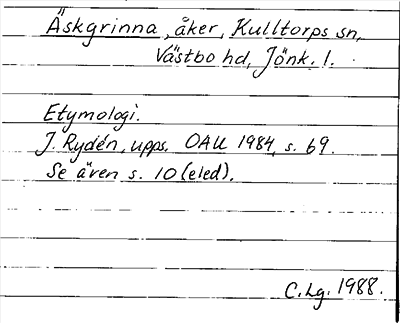 Äskgrinna, åker, Kulltorps sn,
Västbo hd, Jönk. l.
Etymologi.
J. Rydén, upps. OAU 1984, s. 69.
Se även s. 10 (eled).
C. Lg. 1988.